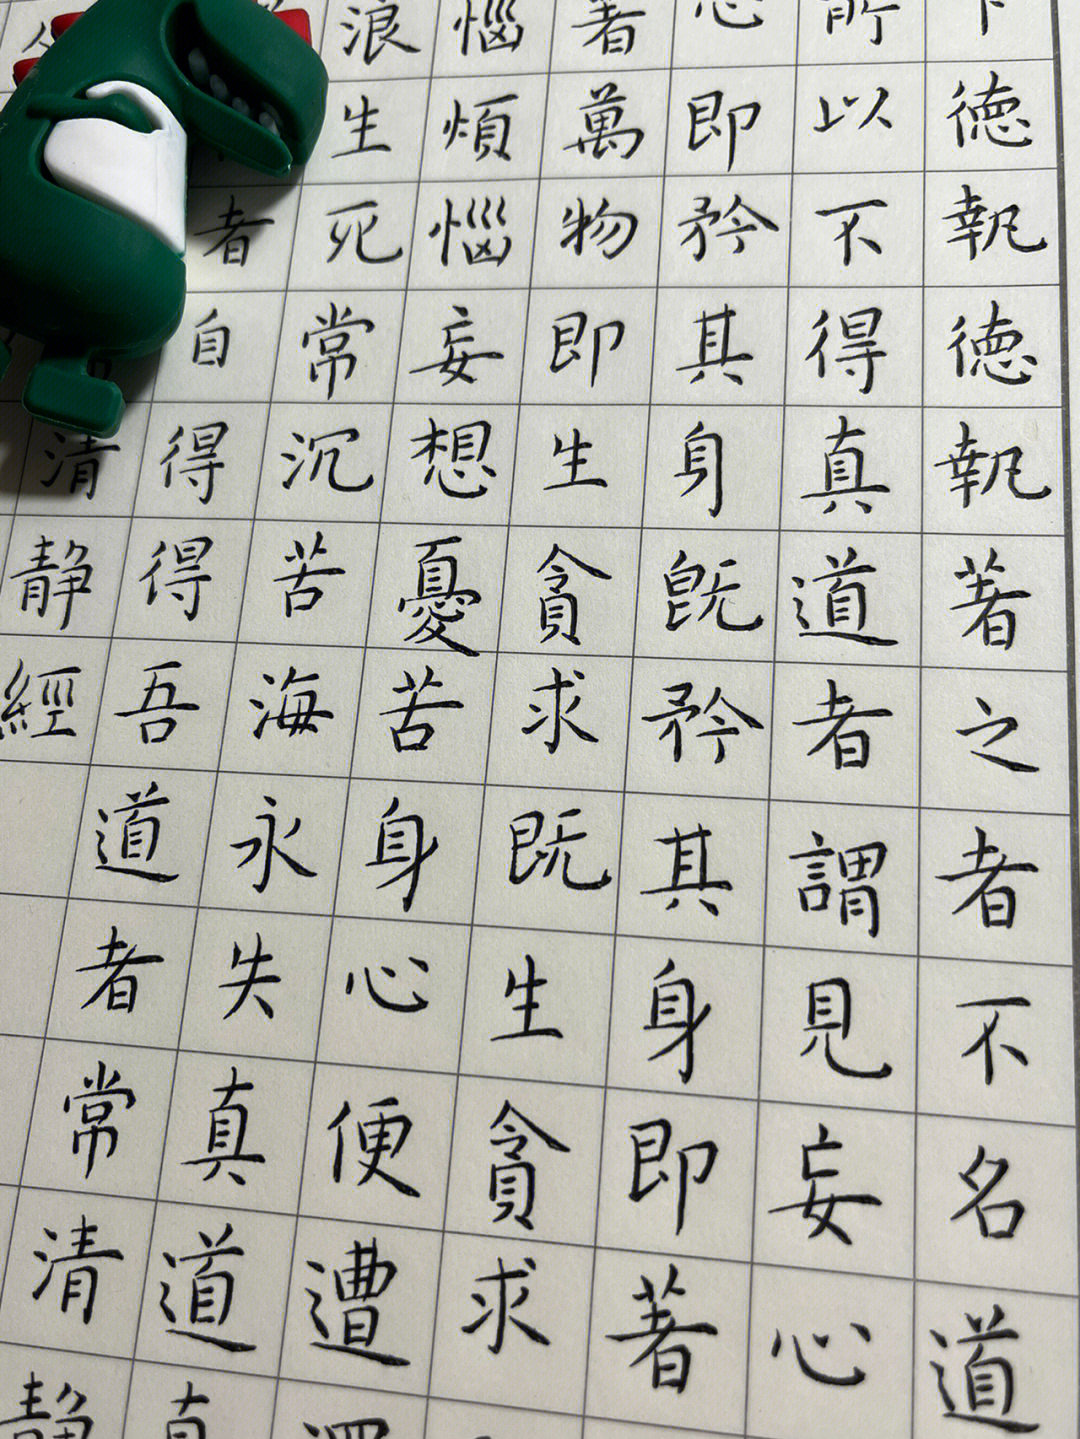 下徳執徳執著之者不名道
所以不得真道者謂見妄心
心即矜其身既矜其身即著
著萬物即生貪求既生貪求
惱煩惱妄想憂苦身心便遭
浪生死常沉苦海永失真道真
者自得得吾道者常清静
清静經